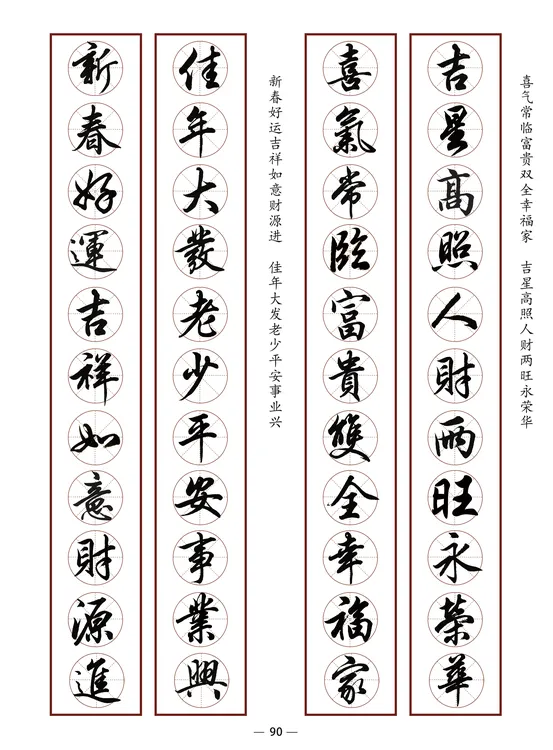 喜气常临富贵双全幸福家 吉星高照人财两旺永荣华
吉星高照人財兩旺永榮華
喜氣常臨富貴雙全幸福家
新春好运吉祥如意财源进 佳年大发老少平安事业兴
佳年大發老少平安事業興
新春好運吉祥如意財源進
— 90 —